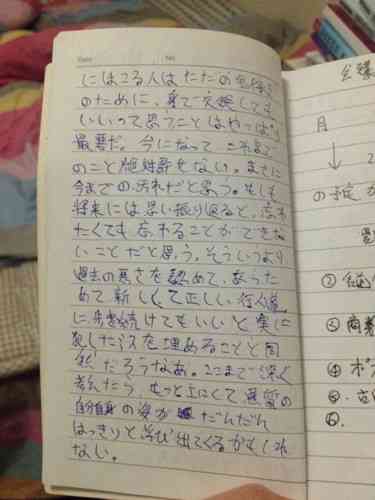 Date No.
にはこる人はただの
のために、身で交換しても
いいって思うことはやっぱり
最悪だ。今になって これまで
のこと絶対許せない。まさに
今までの汚れだと思う。もしも
将来には思い振り返ると、忘れ
たくても忘れることができな
いことだと思う。そういうより
過去の悪さを認めて、あらた
めて新しくて正しい行く道
に歩き続けてもいいと実に
犯したミスを埋めることと同
然だろうなあ。ここまで深く
考えたら、もっと上にくて最愛の
自分自身の姿が だんだん
はっきりと浮び出てくるかもしれ
ない。
月
↓ 2
の予定が
②
③ 商業
④ ポ
⑤.
⑥.